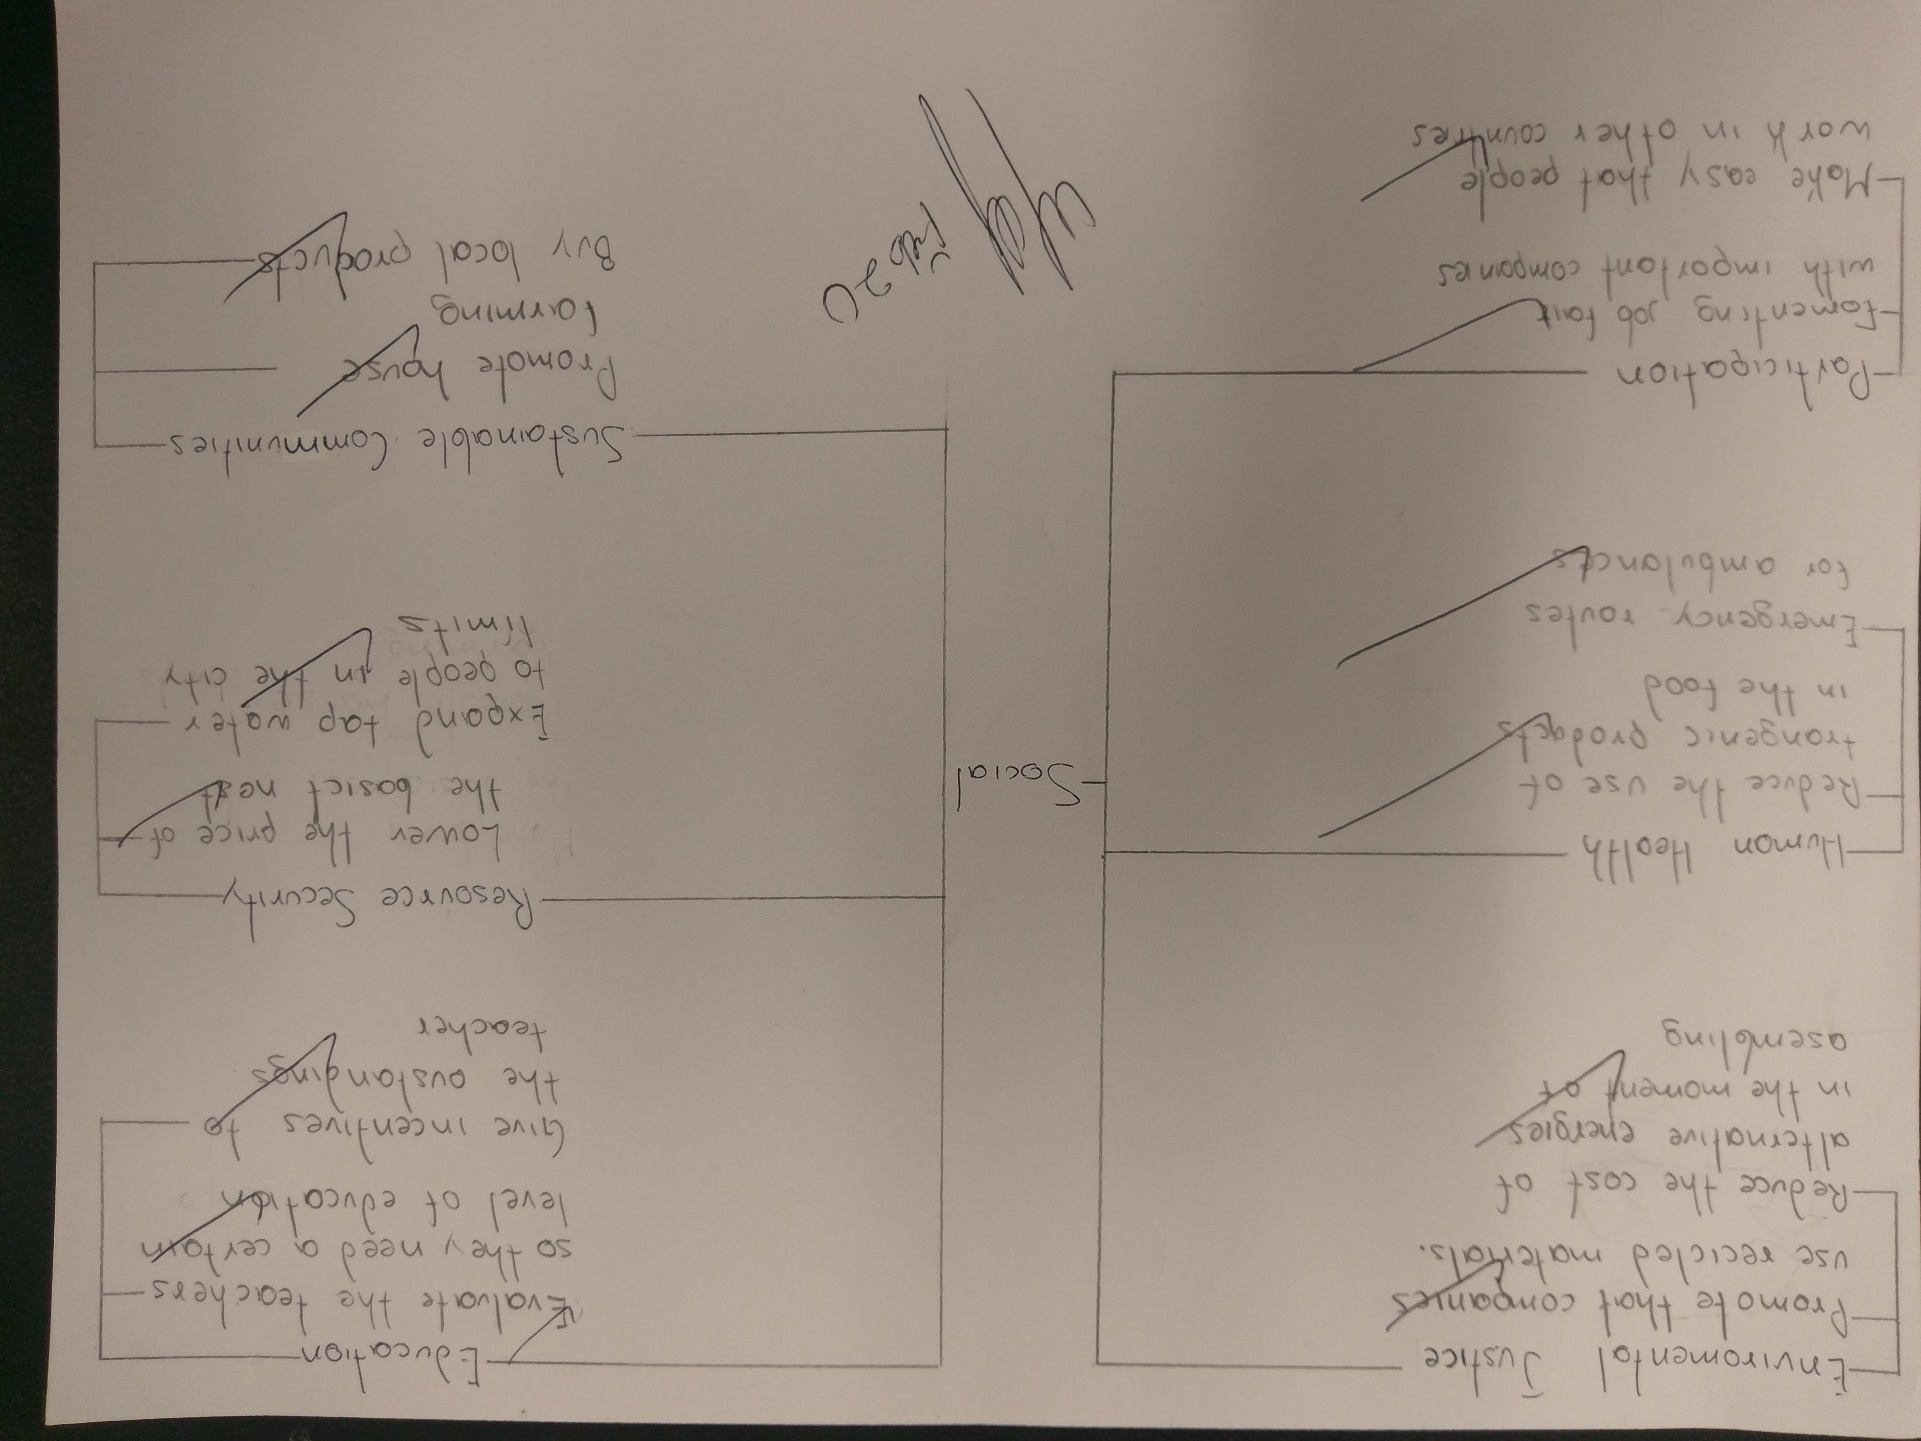 Enviromental Justice
Promote that companies
use recicled materials.
Reduce the cost of
alternative energies
in the moment of
asembling
Human Health
Reduce the use of
trangenic prodacts
in the food
Emergency routes
for ambulances
Participation
Fomenting job fair
with important companies
Make easy that people
work in other countries
Social
Education
Evaluate the teachers
so they need a certain
level of education
Give incentives to
the oustandings
teacher
Resource Security
Lower the price of
the basict
Expand tap water
to people in the city
limits
Sustainable Communities
Promote house
farming
Buy local products
Feb 20